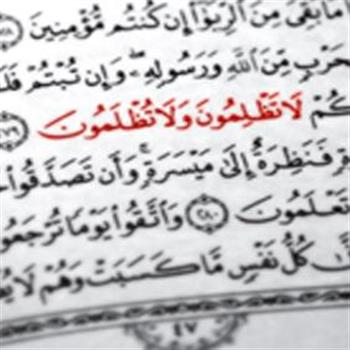 مَا بَقِىَ مِنَ ٱلرِّبَوٰٓا۟ إِن كُنتُم مُّؤْمِنِينَ ٢٧٨
بِحَرْبٍ مِّنَ ٱللَّهِ وَرَسُولِهِۦ ۖ وَإِن تُبْتُمْ فَلَ
كُمْ لَا تَظْلِمُونَ وَلَا تُظْلَمُونَ ٢٧٩
ةٍ فَنَظِرَةٌ إِلَىٰ مَيْسَرَةٍ ۚ وَأَن تَصَدَّقُوا۟
تَعْلَمُونَ ٢٨٠ وَٱتَّقُوا۟ يَوْمًا تُرْجَعُو
كُلُّ نَفْسٍ مَّا كَسَبَتْ وَهُمْ لَا يُ
٤٧